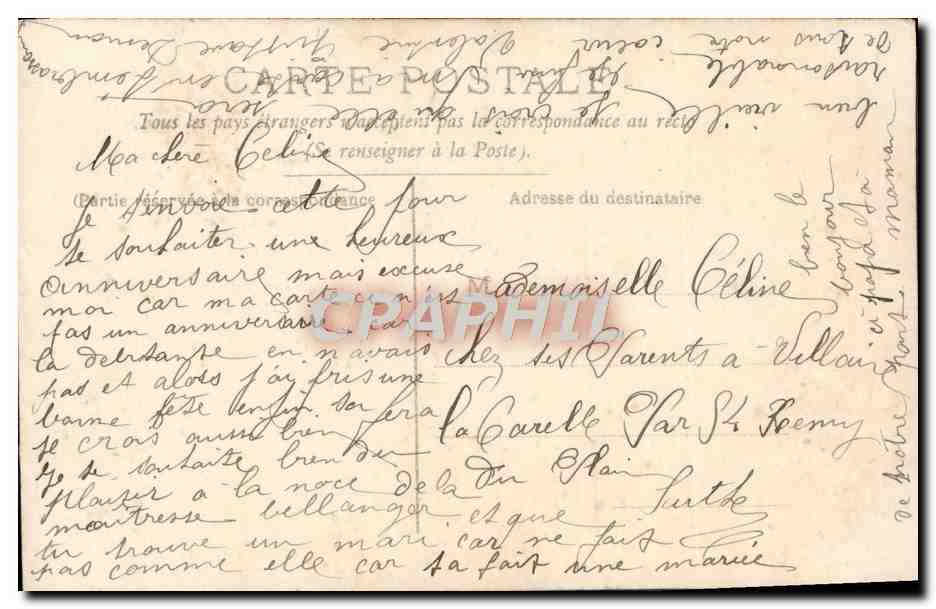 CARTE POSTALE
Tous les pays étrangers n'acceptent pas la correspondance au recto
(Se renseigner à la Poste).
(Partie réservée à la correspondance
Adresse du destinataire
Ma chere Celine
je t'envoie cette pour
te souhaiter une heureux
anniversaire mais excuse
moi car ma carte ci n'es
pas un anniversaire car
la debitante en n'avais
pas et alors j'ai pris une
bonne fête enfin sa fera
je crois aussi bien
je te souhaite bien du
plaisir a la noce de la
maitresse bellanger et que
tu trouve un mari car ne fait
pas comme elle car sa fait une mariée
bien vieille je crois qu'elle sera
raisonnable
de tous notre coeur Valentine Gustave
M
Mademoiselle Céline
chez ses Parents a Villair
la Carelle Par St Remy
du Plain
Sarthe
bien le
bonjour
a papa et a
maman
de notre part
CPAPHIL